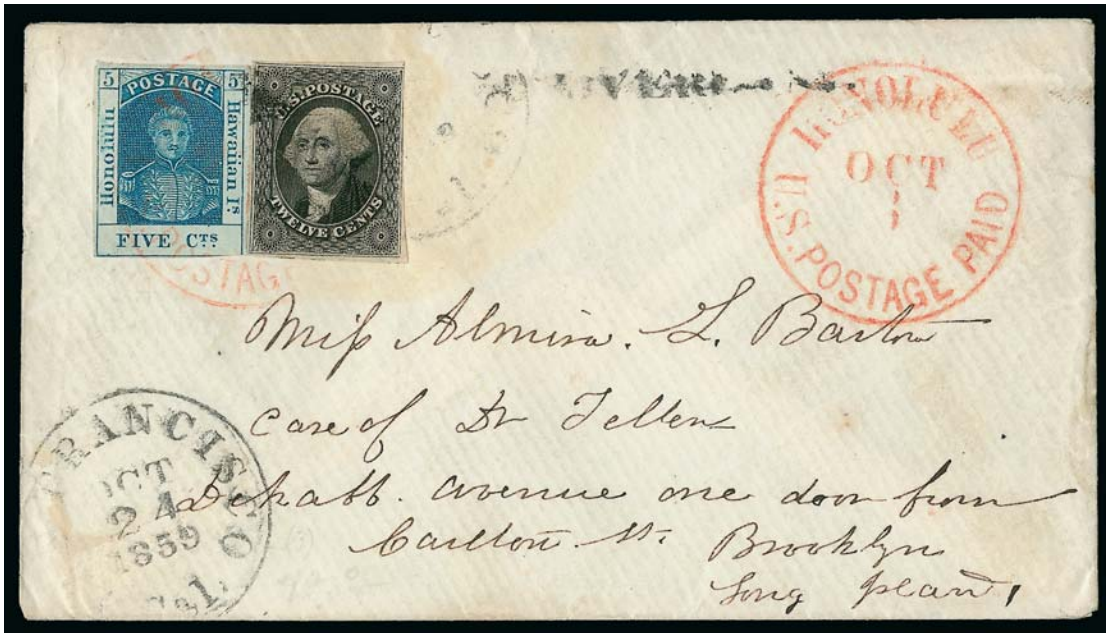 5 POSTAGE 5
Honolulu
Hawaiian Is.
FIVE Cts
U.S. POSTAGE
TWELVE CENTS
HONOLULU
OCT
U.S. POSTAGE PAID
POSTAG
Miss Almira. L. Barlow
Care of Dr Teller
Dekalb. avenue one door from
Carlton St. Brooklyn
Long
FRANCISCO
OCT
24
1859
Cal.